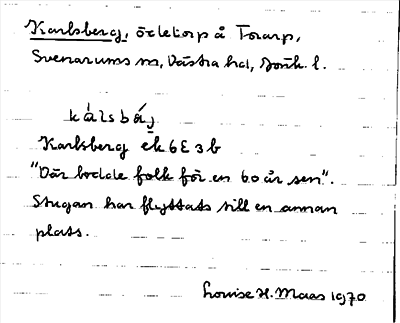 Karlsberg, ödetorp å Torarp,
Svenarums sn, Västra hd, Jönk. l.
kálsbáj
Karlsberg ek 6E 3b
"Där bodde folk för en 60 år sen".
Stugan har flyttats till en annan
plats.
Louise H. Maas 1970